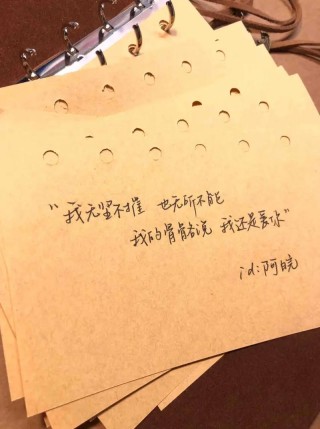 “我无坚不摧 也无所不能
我的骨骼说 我还是爱你”
id:阿皖